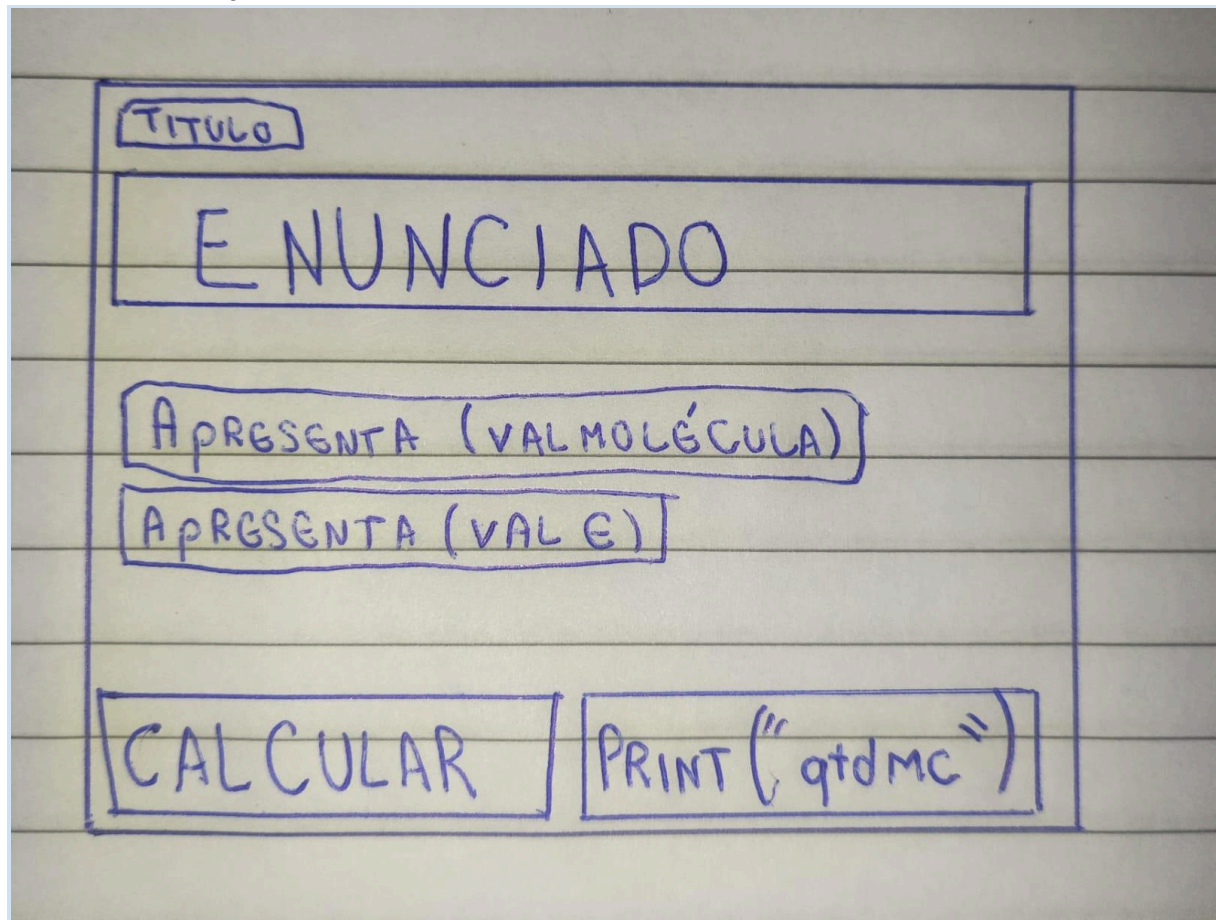 TITULO
ENUNCIADO
APRESENTA (VALMOLÉCULA)
APRESENTA (VAL E)
CALCULAR
PRINT ("qtdMC")